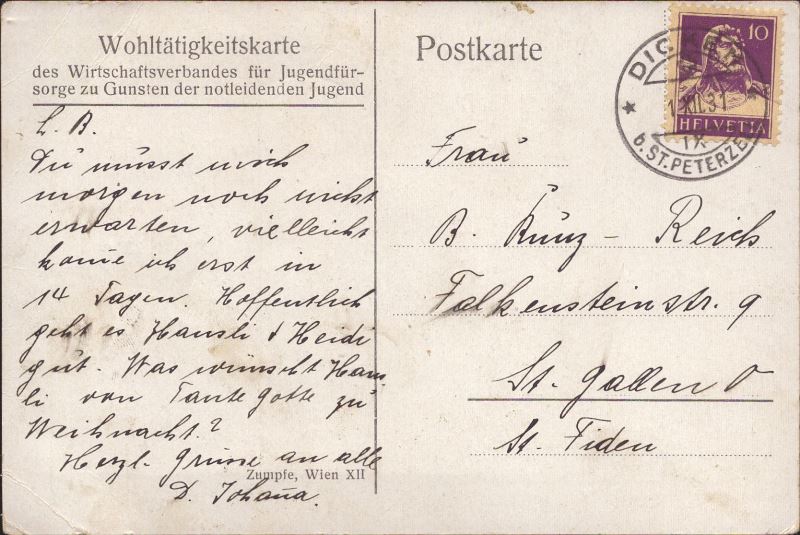 Wohltätigkeitskarte
des Wirtschaftsverbandes für Jugendfür-
sorge zu Gunsten der notleidenden Jugend
L. B.
Du musst mich
morgen noch nicht
erwarten, vielleicht
kom̄e ich erst in
14 Tagen. Hoffentlich
geht es Hansli & Heidi
gut. Was wünscht Hans-
li von Tante Gotte zu
Weihnacht?
Herzl. Grüsse an alle
D. Johan̄a.
Zumpfe, Wien XII
Postkarte
10
HELVETIA
XII.31
b. ST. PETERZE
Frau
B. Kunz - Reich
Falkensteinstr. 9
St. Gallen O
St. Fiden